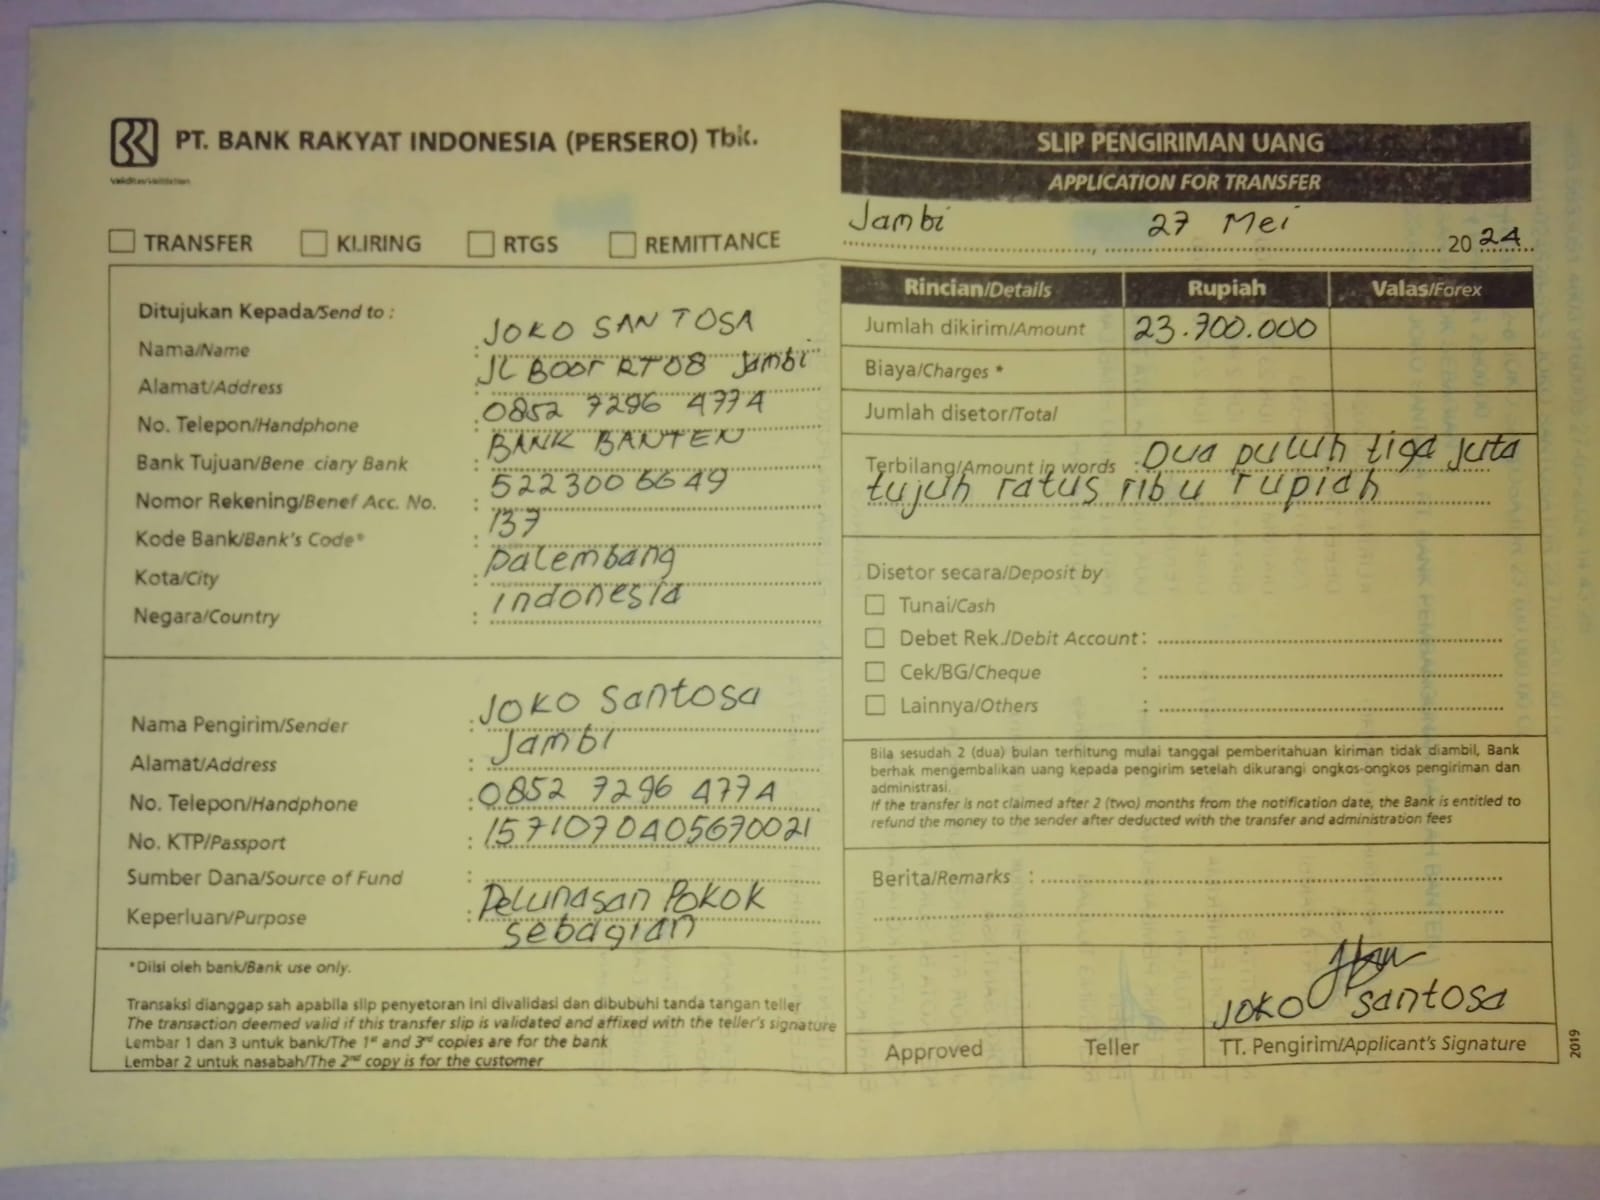 PT. BANK RAKYAT INDONESIA (PERSERO) Tbk.
Validitas/Validation
TRANSFER KLIRING RTGS REMITTANCE
SLIP PENGIRIMAN UANG
APPLICATION FOR TRANSFER
Jambi, 27 Mei 2024
Ditujukan Kepada/Send to :
Nama/Name : JOKO SANTOSA
Alamat/Address : JL BOOT RT08 Jambi
No. Telepon/Handphone : 0852 7296 4774
Bank Tujuan/Bene ciary Bank : BANK BANTEN
Nomor Rekening/Benef Acc. No. : 5223006649
Kode Bank/Bank's Code* : 137
Kota/City : palembang
Negara/Country : indonesia
Nama Pengirim/Sender : JOKO Santosa
Alamat/Address : Jambi
No. Telepon/Handphone : 0852 7296 4774
No. KTP/Passport : 1571070405670021
Sumber Dana/Source of Fund :
Keperluan/Purpose : Pelunasan Pokok
sebagian
*Diisi oleh bank/Bank use only.
Transaksi dianggap sah apabila slip penyetoran ini divalidasi dan dibubuhi tanda tangan teller
The transaction deemed valid if this transfer slip is validated and affixed with the teller's signature
Lembar 1 dan 3 untuk bank/The 1st and 3rd copies are for the bank
Lembar 2 untuk nasabah/The 2nd copy is for the customer
Rincian/Details Rupiah Valas/Forex
Jumlah dikirim/Amount 23.700.000
Biaya/Charges *
Jumlah disetor/Total
Terbilang/Amount in words : Dua puluh tiga juta
tujuh ratus ribu rupiah
Disetor secara/Deposit by
Tunai/Cash
Debet Rek./Debit Account :
Cek/BG/Cheque :
Lainnya/Others :
Bila sesudah 2 (dua) bulan terhitung mulai tanggal pemberitahuan kiriman tidak diambil, Bank
berhak mengembalikan uang kepada pengirim setelah dikurangi ongkos-ongkos pengiriman dan
administrasi.
If the transfer is not claimed after 2 (two) months from the notification date, the Bank is entitled to
refund the money to the sender after deducted with the transfer and administration fees
Berita/Remarks :
JOKO Santosa
Approved Teller TT. Pengirim/Applicant's Signature
2019